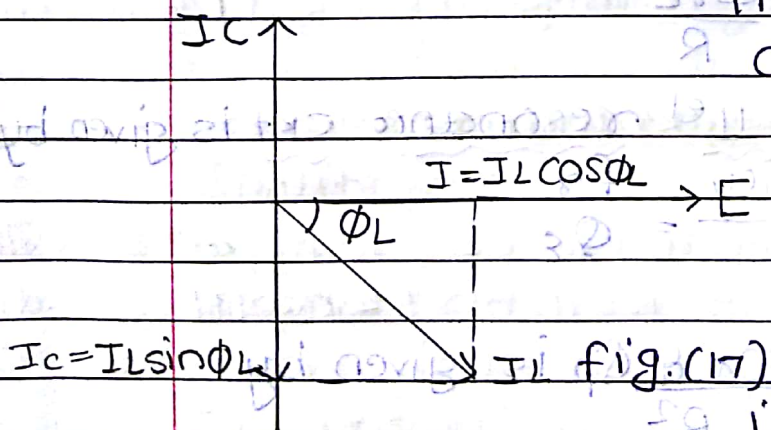 IC
I=ILCOSΦL
E
ΦL
Ic=ILsinΦL
IL fig.(17)